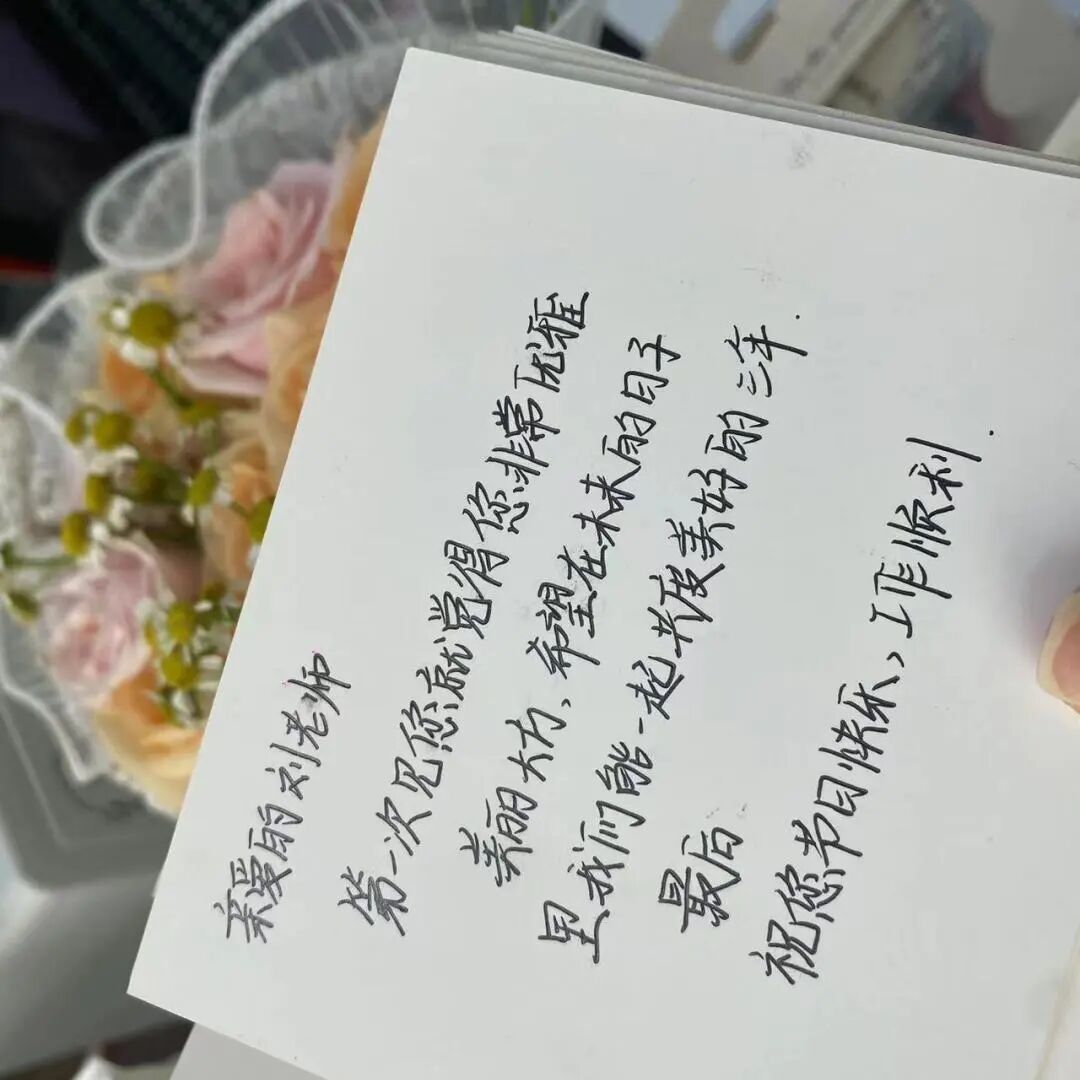 亲爱的刘老师
第一次见您就觉得您非常优雅
美丽大方、希望在未来的日子
里我们能一起共度美好的三年.
最后
祝您节日快乐、工作顺利.